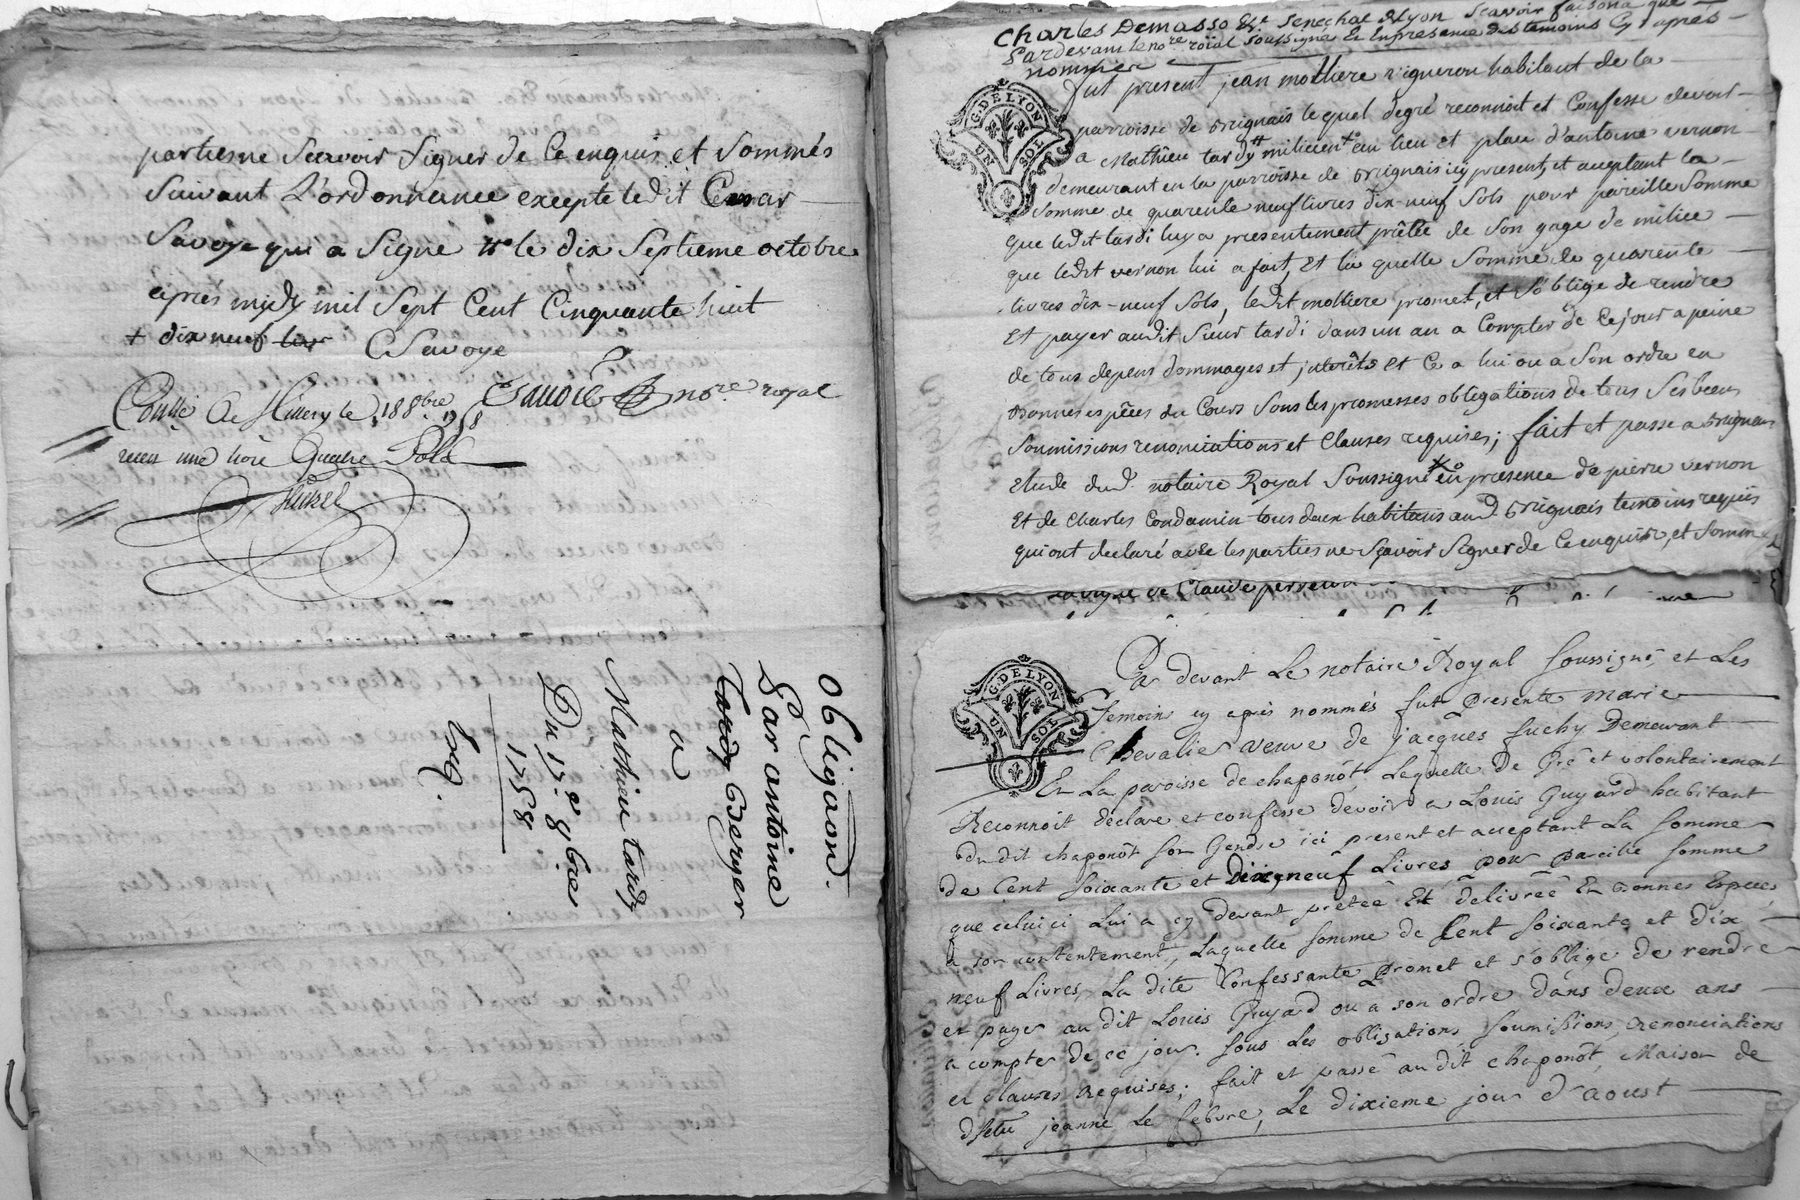 partiesne Scavoir Signer de Ce enquis et Sommés
Suivant L'ordonnance excepte ledit Cesar
Savoye qui a Signe le dix Septieme octobre
apres midy mil Sept Cent Cinquante huit
+ dix neuf liv CSavoye
nore royal
Conllé A le 188bre 1758
receu une livre Quatre Sols
obligaon.
Par antoine
Tardy Berger
a
Mathieu tardy
Du 17e 8bre
1758
Exp.
Charles Demasso Est Senechal dLyon Scavoir faisons que
Pardevant le nore roial Soussigné et En presence des temoins Cy aprés
nommés
fut present jean mottiere vigneron habitant de la
parroisse de brignais lequel degré reconnoit et Confesse devoir
a Mathieu tardy milicien en lieu et place d'antoine vernon
demeurant en la parroisse de brignais icy present, et acceptant la
Somme de quarente neuf livres dix-neuf Sols pour pareille Somme
que ledit tardi luy a presentement prêtée de Son gage de milice
que ledit vernon lui a fait, Et la quelle Somme de quarente
livres dix-neuf Sols, ledit mottiere promet, et S'oblige de rendre
et payer audit Sieur tardi dans un an a Compter de Ce jour a peine
de tous depens dommages et jnterêts et Ce a lui ou a Son ordre en
bonnes espêces du Cours Sous les promesses obligations de tous Ses biens
Soumissions renonciations et Clauses requises; fait et passe a brignais
etude dud. notaire Royal Soussigné en presence de pierre vernon
Et de Charles Condamin tous deux habitans aud brignais temoins requis
qui ont declaré avec les parties ne Sçavoir Signer de Ce enquis, et Sommés
de Claude perrein
G. DE LYON
UN SOL
Par devant Le notaire Royal Soussigné, et Les
Temoins cy aprés nommés fut Presente marie
Chevalier veuve de jacques fuchy Demeurant
En La paroisse de chaponôt, Laquelle De Gré et volontairement
Reconnoit declare et confesse devoir a Louis Guyard habitant
du dit chaponôt son Gendre ici present et acceptant La somme
de Cent soixante et dix neuf Livres pour pareille somme
que celui ci Lui a cy devant pretée Et delivrée En bonnes Especes
a son contentement, Laquelle somme de Cent soixante et dix
neuf Livres, La dite Confessante Promet et s'oblige de rendre
et payer au dit Louis Guyard ou a son ordre dans deux ans
a compter de ce jour. sous Les obligations, soumissions, renonciations
et clauses requises; fait et passé au dit chaponôt, Maison de
jeanne Le febvre, Le dixieme jour d'aoust
G. DE LYON
UN SOL